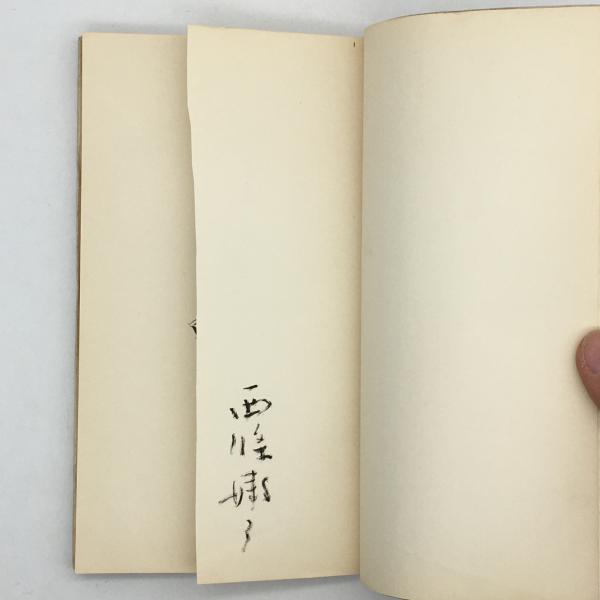 西條嫩子